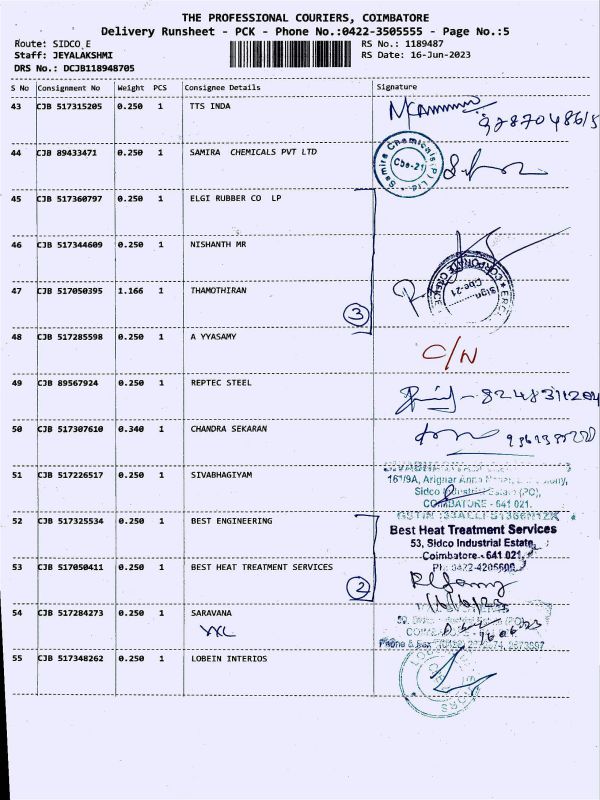 THE PROFESSIONAL COURIERS, COIMBATORE
Delivery Runsheet - PCK - Phone No.:0422-3505555 - Page No.:5
Route: SIDCO_E
RS No.: 1189487
Staff: JEYALAKSHMI
RS Date: 16-Jun-2023
DRS No.: DCJB118948705
S No Consignment No Weight PCS Consignee Details Signature
43 CJB 517315205 0.250 1 TTS INDA
44 CJB 89433471 0.250 1 SAMIRA CHEMICALS PVT LTD
Samira Chemicals (P) Ltd.
Cbe-21
45 CJB 517360797 0.250 1 ELGI RUBBER CO LP
46 CJB 517344609 0.250 1 NISHANTH MR
CORPORATE OFFICE
Cbe-21
47 CJB 517050395 1.166 1 THAMOTHIRAN
3
48 CJB 517285598 0.250 1 A YYASAMY
C/N
49 CJB 89567924 0.250 1 REPTEC STEEL
50 CJB 517307610 0.340 1 CHANDRA SEKARAN
51 CJB 517226517 0.250 1 SIVABHAGIYAM
161/9A, Arignar Anna
Sidco Industrial Estate (PO),
COIMBATORE - 641 021.
52 CJB 517325534 0.250 1 BEST ENGINEERING
Best Heat Treatment Services
53, Sidco Industrial Estate,
Coimbatore - 641 021.
53 CJB 517050411 0.250 1 BEST HEAT TREATMENT SERVICES
Ph: 0422-4205600
2
54 CJB 517284273 0.250 1 SARAVANA
55 CJB 517348262 0.250 1 LOBEIN INTERIOS